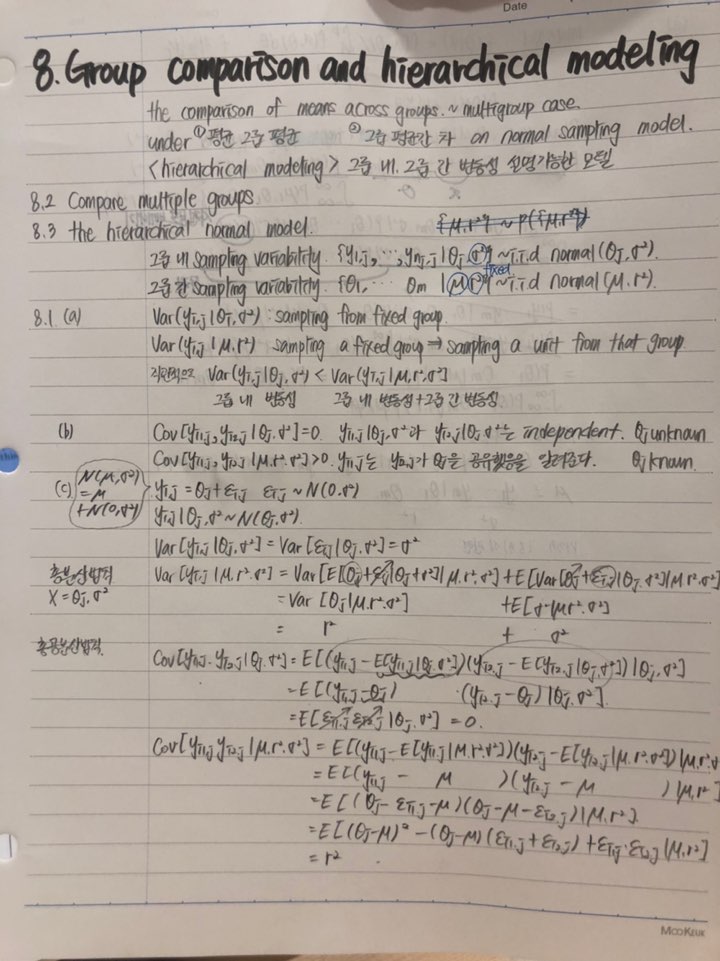 Date
8. Group comparison and hierarchical modeling
the comparison of means across groups. ~ multigroup case.
under ① 평균 그룹 평균 ② 그룹 평균간 차 on normal sampling model.
<hierarchical modeling> 그룹 내, 그룹 간 변동성 설명가능한 모델
8.2 Compare multiple groups
8.3 the hierarchical normal model. {μ.r²} ~ p({μ.r²})
그룹 내 sampling variability. {y1,j, ⋯, ynj,j | θj, σ²} ~ i.i.d normal(θj, σ²).
fixed
그룹 간 sampling variability. {θ1, ⋯ θm | μ, r²} ~ i.i.d normal(μ, r²).
8.1. (a) Var(yi,j | θj, σ²) : sampling from fixed group.
Var(yi,j | μ, r²) sampling a fixed group ⇒ sampling a unit from that group
직관적으로 Var(yi,j | θj, σ²) < Var(yi,j | μ, r², σ²]
그룹 내 변동성 그룹 내 변동성 + 그룹 간 변동성
(b) Cov[yi1,j, yi2,j | θj, σ²] = 0. yi1,j | θj, σ²과 yi2,j | θj, σ²는 independent. θj unknown
Cov[yi1,j, yi2,j | μ, r², σ²] > 0. yi1,j는 yi2,j가 θj을 공유했음을 알려준다. θj known.
(c) N(μ, σ²)
= μ
+ N(0, σ²)
yi,j = θj + εi,j εi,j ~ N(0, σ²)
yi,j | θj, σ² ~ N(θj, σ²).
Var[yi,j | θj, σ²] = Var[εi,j | θj, σ²] = σ²
총분산법칙 Var[yi,j | μ, r², σ²] = Var[E[θj + εi,j | θj + σ²] | μ, r², σ²] + E[Var[θj + εi,j | θj, σ²] | μ, r², σ²]
X = θj, σ² = Var [θj | μ, r², σ²] + E[σ² | μ r², σ²]
= r² + σ²
총공분산법칙. Cov[yi1,j, yi2,j | θj, σ²] = E[(yi1,j − E[yi1,j | θj, σ²])(yi2,j − E[yi2,j | θj, σ²]) | θj, σ²]
= E[(yi1,j − θj) (yi2,j − θj) | θj, σ²]
= E[εi1,j εi2,j | θj, σ²] = 0.
Cov[yi1,j yi2,j | μ, r², σ²] = E[(yi1,j − E[yi1,j | μ, r², σ²])(yi2,j − E[yi2,j | μ, r², σ²]) | μ, r², σ
= E[(yi1,j − μ )(yi2,j − μ ) | μ, r²
= E[(θj − εi1,j − μ)(θj − μ − εi2,j) | μ, r²]
= E[(θj − μ)² − (θj − μ)(εi1,j + εi2,j) + εi1,j · εi2,j | μ, r²]
= r²
MOOKEUK